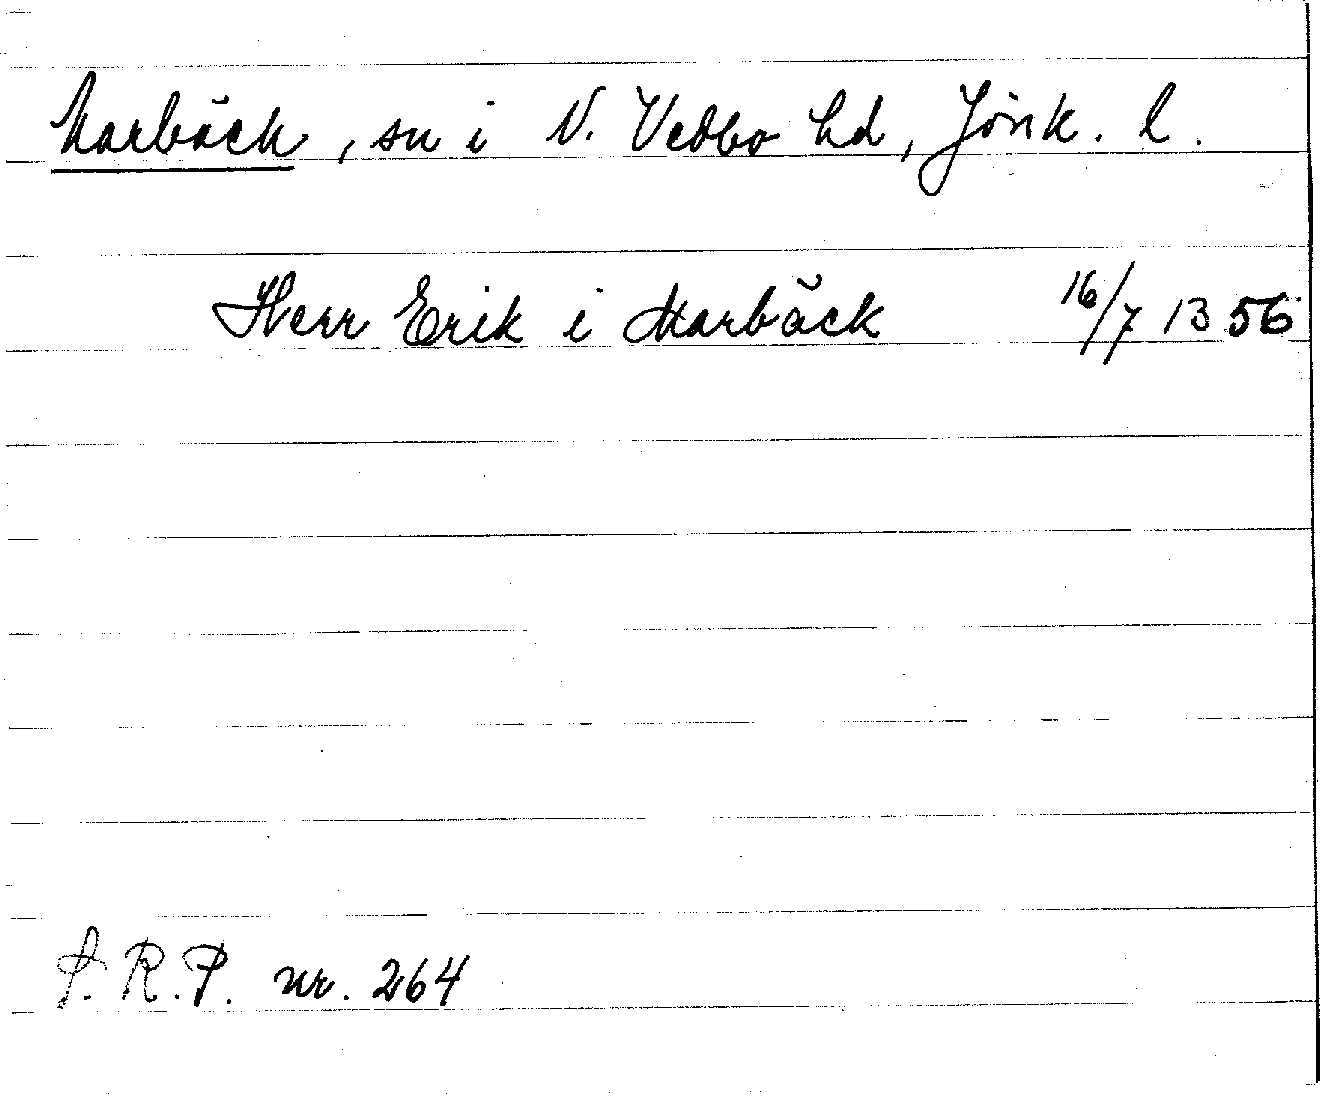 Marbäck, sn i N. Vedbo hd, Jönk. l.
Herr Erik i Marbäck 16/7 1356
S.R.P. nr. 264